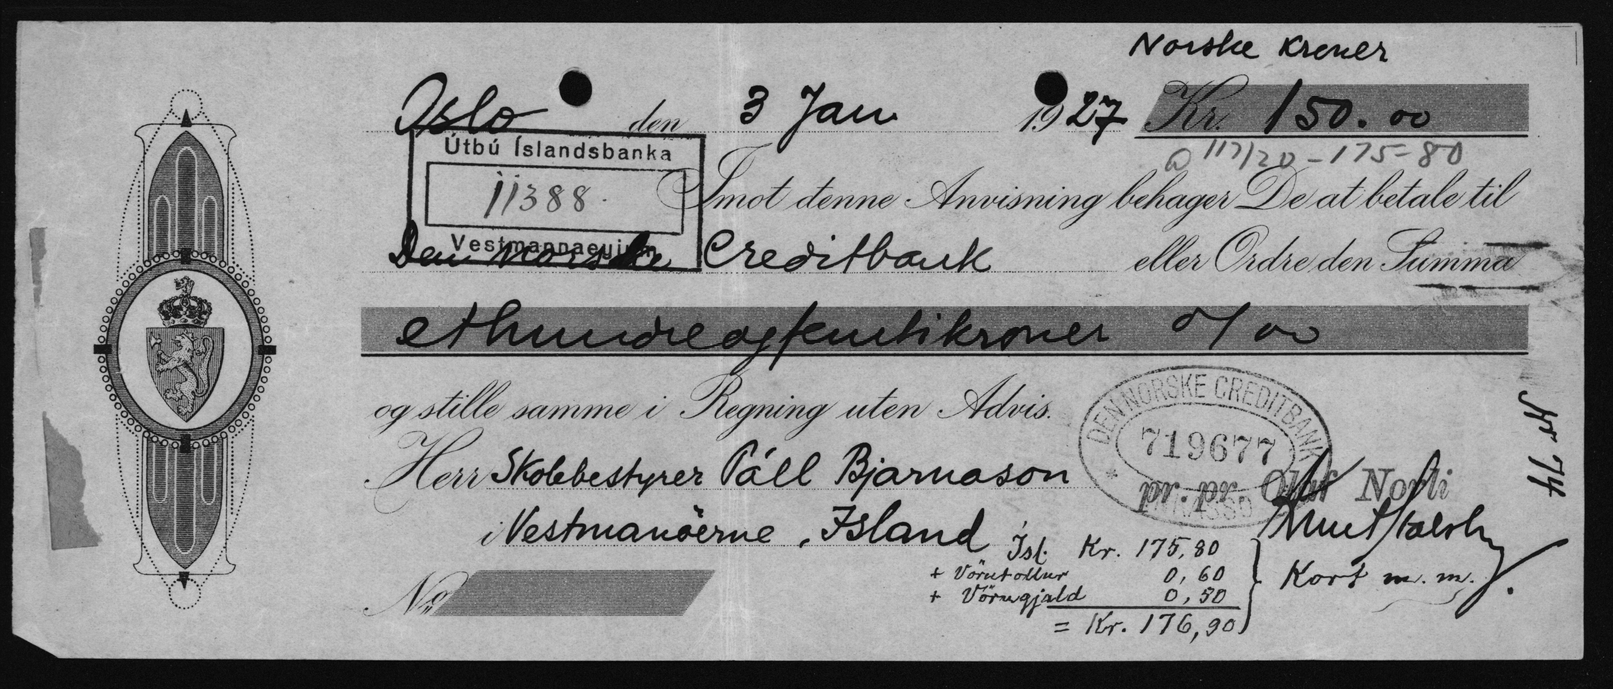 Norske Kroner
Oslo den 3 Jan 1927 Kr. 150.00
@ 117/20 - 175-80
Útbú Íslandsbanka
11388
Vestmannaeyjum
Imot denne Anvisning behager De at betale til
Den Norske Creditbank eller Ordre den Summa
ethundreogfemtikroner 0/00
og stille samme i Regning uten Advis.
DEN NORSKE CREDITBANK
719677
INKASSO
Herr Skolebestyrer Páll Bjarnason
pr. pr. Olaf Norli
i Vestmanöerne, Island
Ísl. Kr. 175,80
+ Vörutollur 0,60
+ Vörugjald 0,50
= Kr. 176,90
Kort m. m.
No
Kr 74